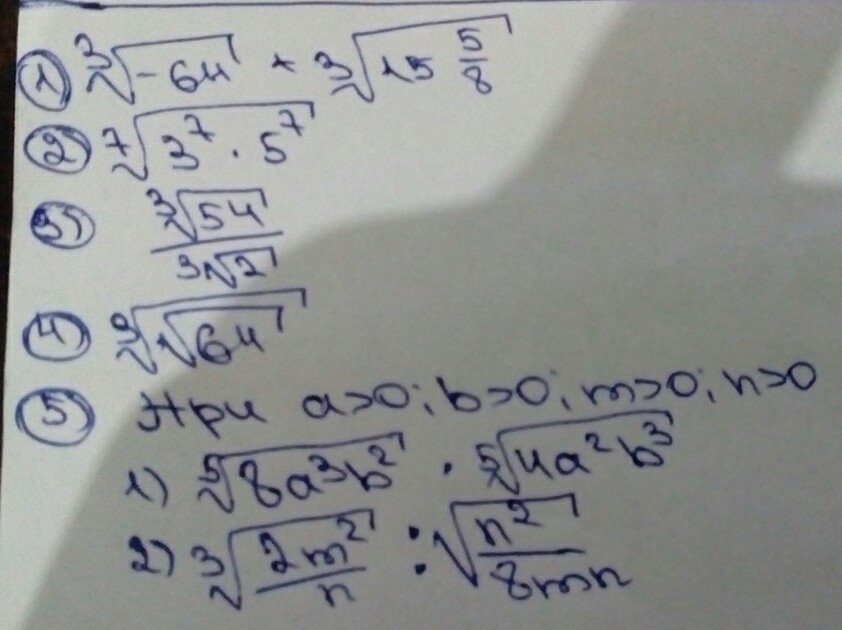 ① ∛-64 + ∛15 5/8
② ⁷√3⁷ · 5⁷
③ ∛54 / ∛2
④ ∛√64
⑤ При a>0; b>0; m>0; n>0
1) ⁵√8a³b² · ⁵√4a²b³
2) ∛2m²/n : √n²/8mn